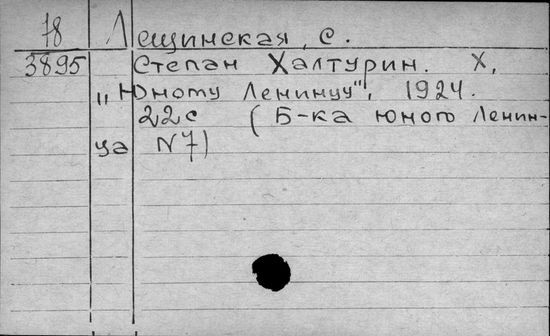 78 Лещинская, С.
3895 Степан Халтурин. Х,
„Юному Ленинцу", 1924.
22 с (Б-ка юного Ленин-
ца N7)